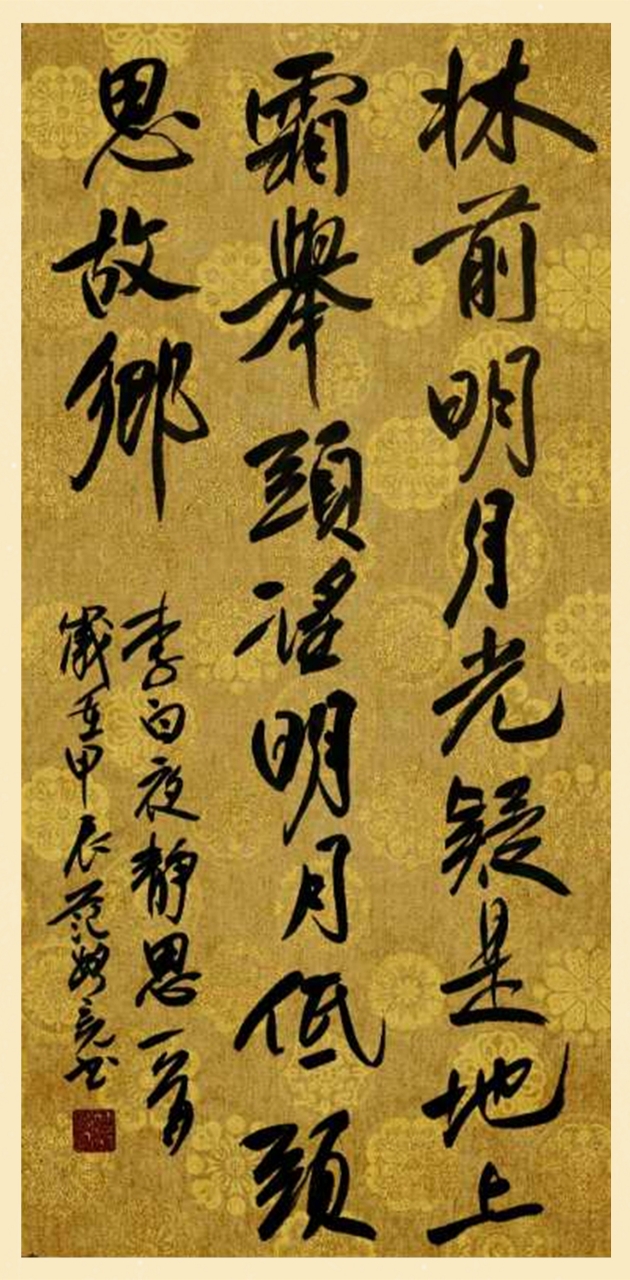 牀前明月光疑是地上
霜舉頭望明月低頭
思故鄉
李白夜靜思一首
歲在甲辰范亮书